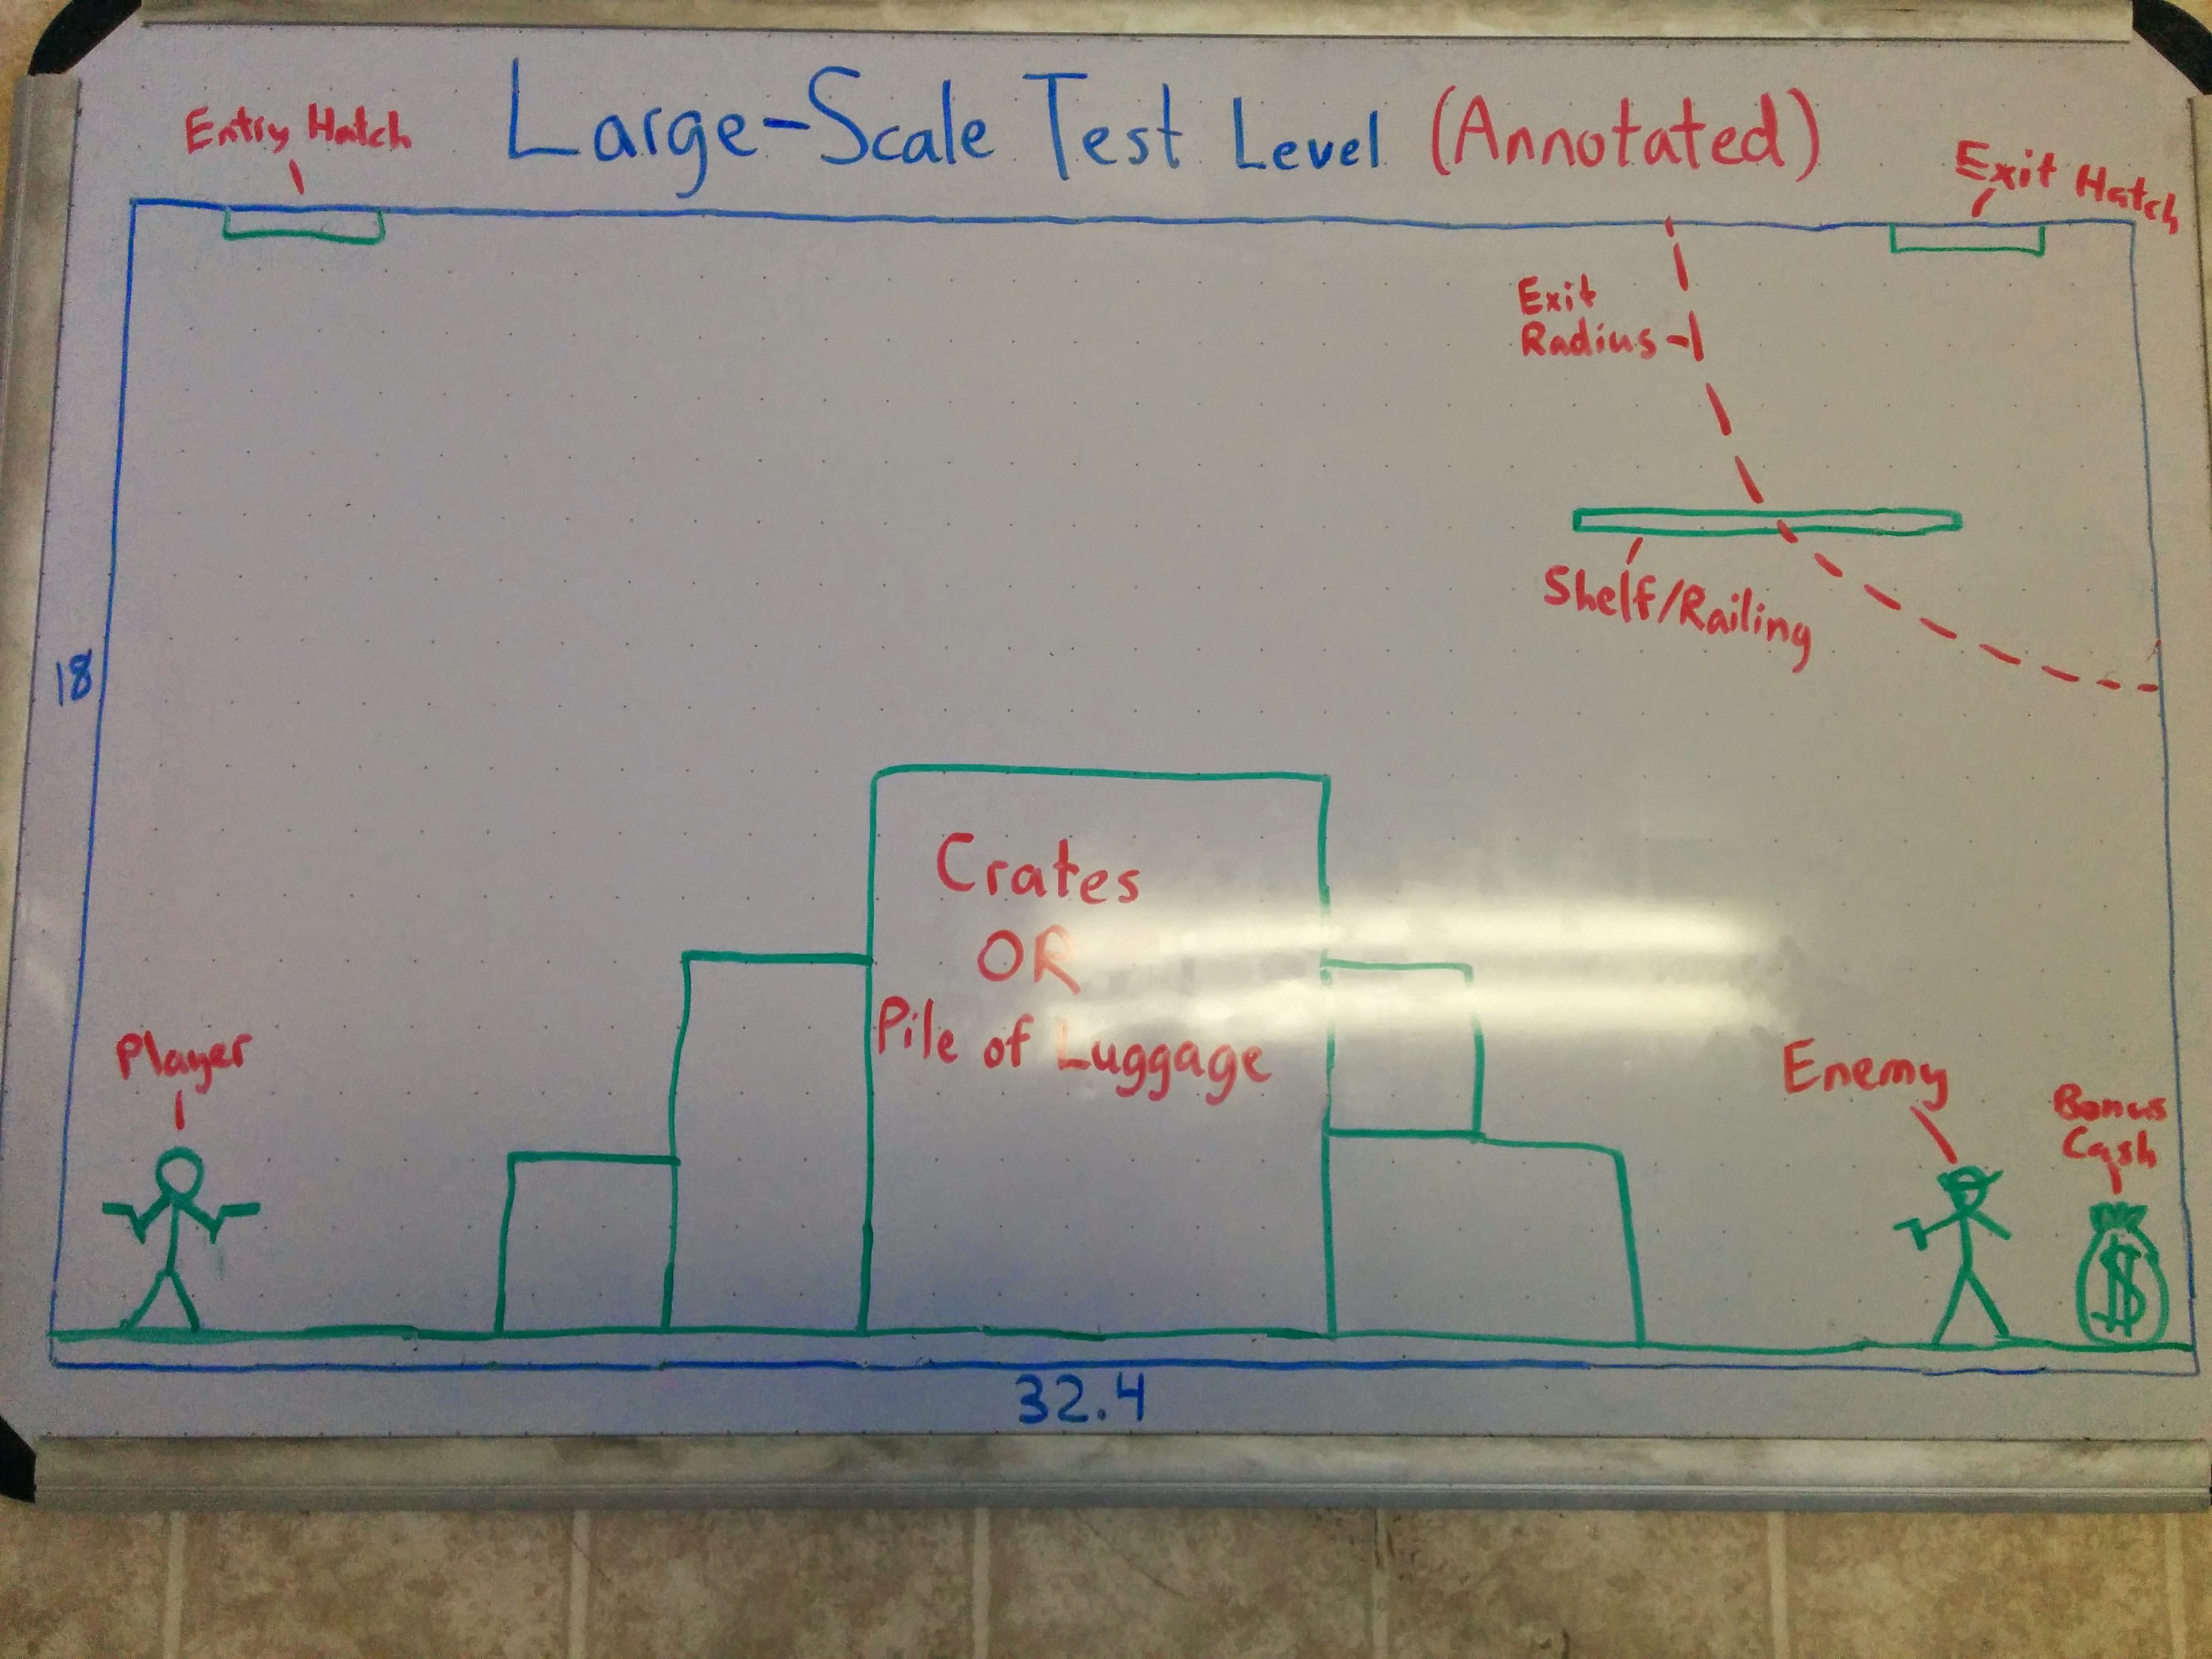 Large-Scale Test Level (Annotated)
Entry Hatch
Exit Hatch
Exit
Radius
Shelf/Railing
18
Crates
OR
Pile of Luggage
Player
Enemy
Bonus
Cash
$
32.4